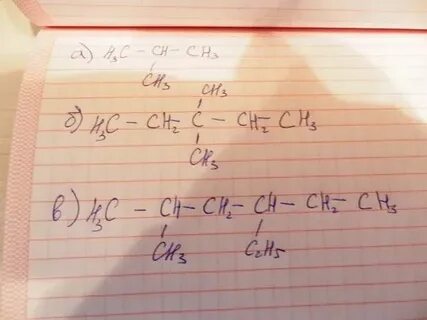 а) H₃C – CH – CH₃
CH₃
CH₃
б) H₃C – CH₂ – C – CH₂ – CH₃
CH₃
в) H₃C – CH – CH₂ – CH – CH₂ – CH₃
CH₃ C₂H₅